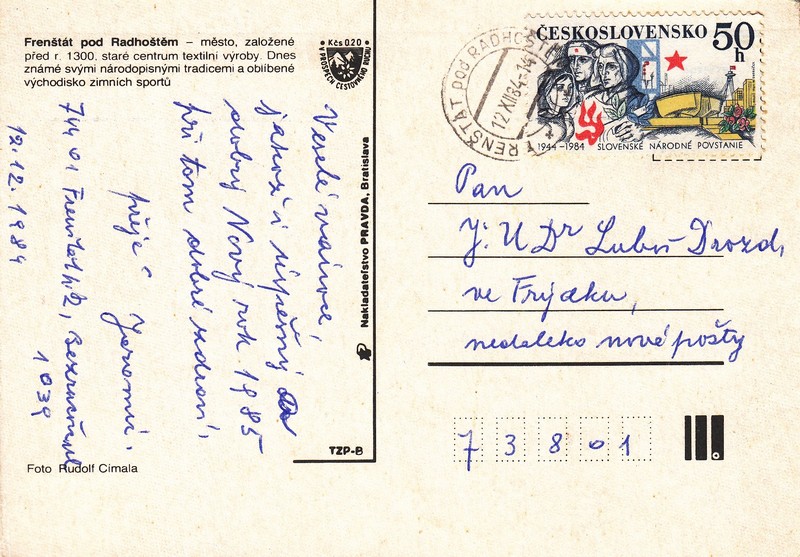 Frenštát pod Radhoštěm – město, založené
před r. 1300. staré centrum textilní výroby. Dnes
známé svými národopisnými tradicemi a oblíbené
východisko zimních sportů
Kčs 0.20
VE PROSPĚCH CESTOVNÍHO RUCHU
Veselé vánoce,
jakož i úspěšný a
dobrý Nový rok 1985
při tom dobré zdraví,
přeje Jaromír.
744 01 Frenštát p.R,
1039
12.12.1984
Foto Rudolf Cimala
Nakladateľstvo PRAVDA, Bratislava
TZP-B
FRENŠTÁT pod RADHOŠTĚM
12.XII.84-14
ČESKOSLOVENSKO 50 h
1944–1984 SLOVENSKÉ NÁRODNÉ POVSTANIE
Pan
J.U.Dr Luboš Drozd,
ve Frýdku,
nedaleko nové pošty
73801